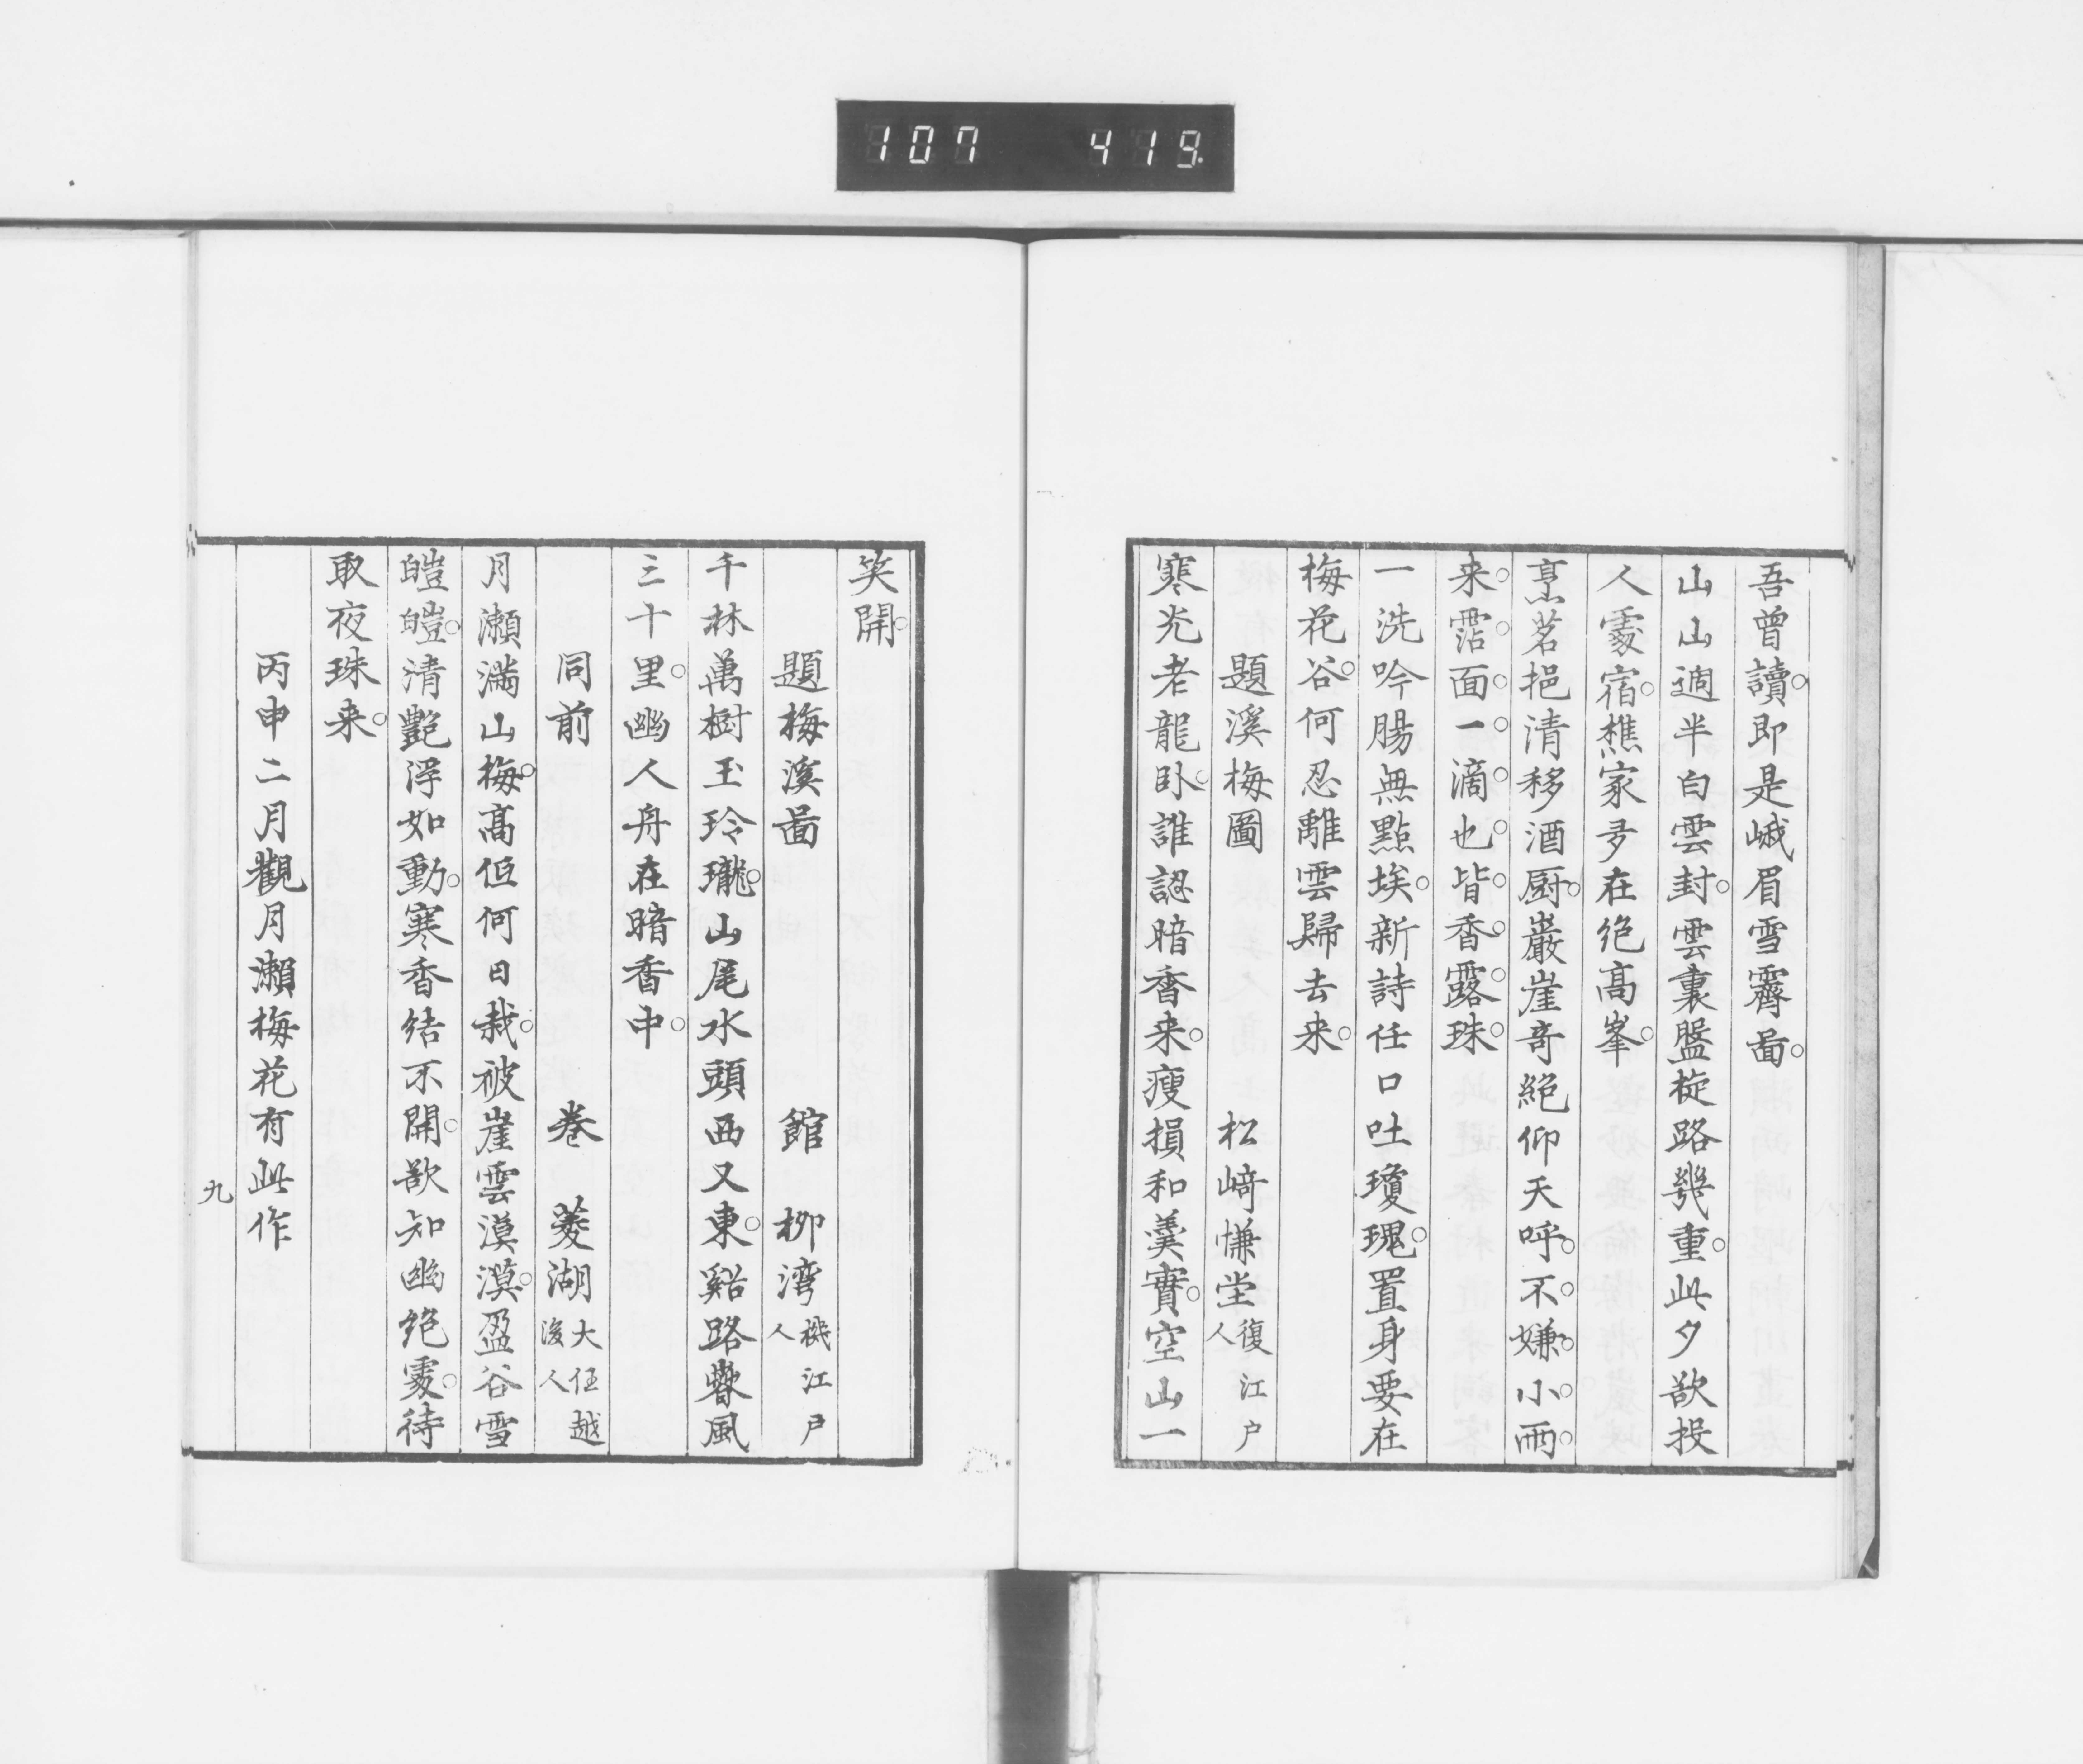 107 419
吾曾讀。即是峨眉雪霽啚。
山山週半白雲封。雲裏盤㨀路幾重。此夕欲投
人處宿。樵家多在絶髙峯。
烹茗挹清移酒厨。巖崖竒絶仰天呼。不。嫌。小。雨。
来。霑。面。一。滴。也。皆。香。露。珠。
一洗吟腸無點埃。新詩任口吐瓊瑰。置身要在
梅花谷。何忍離雲歸去来。
題溪梅圖 松﨑慊堂復江戸人
寒光老龍卧。誰認暗香来。痩損和羹實。空山一
笑開。
題梅溪啚 館 柳湾機江戸人
千林萬樹玉玲瓏。山尾水頭西又東。谿路響風
三十里。幽人舟在暗香中。
同前 巻 菱湖大任越後人
月瀬滿山梅。髙但何日栽。被崖雲漠漠。盈谷雪
皚皚。清艶浮如動。寒香結不開。欲知幽絶處。待
取夜珠来。
丙申二月觀月瀬梅花有此作
九